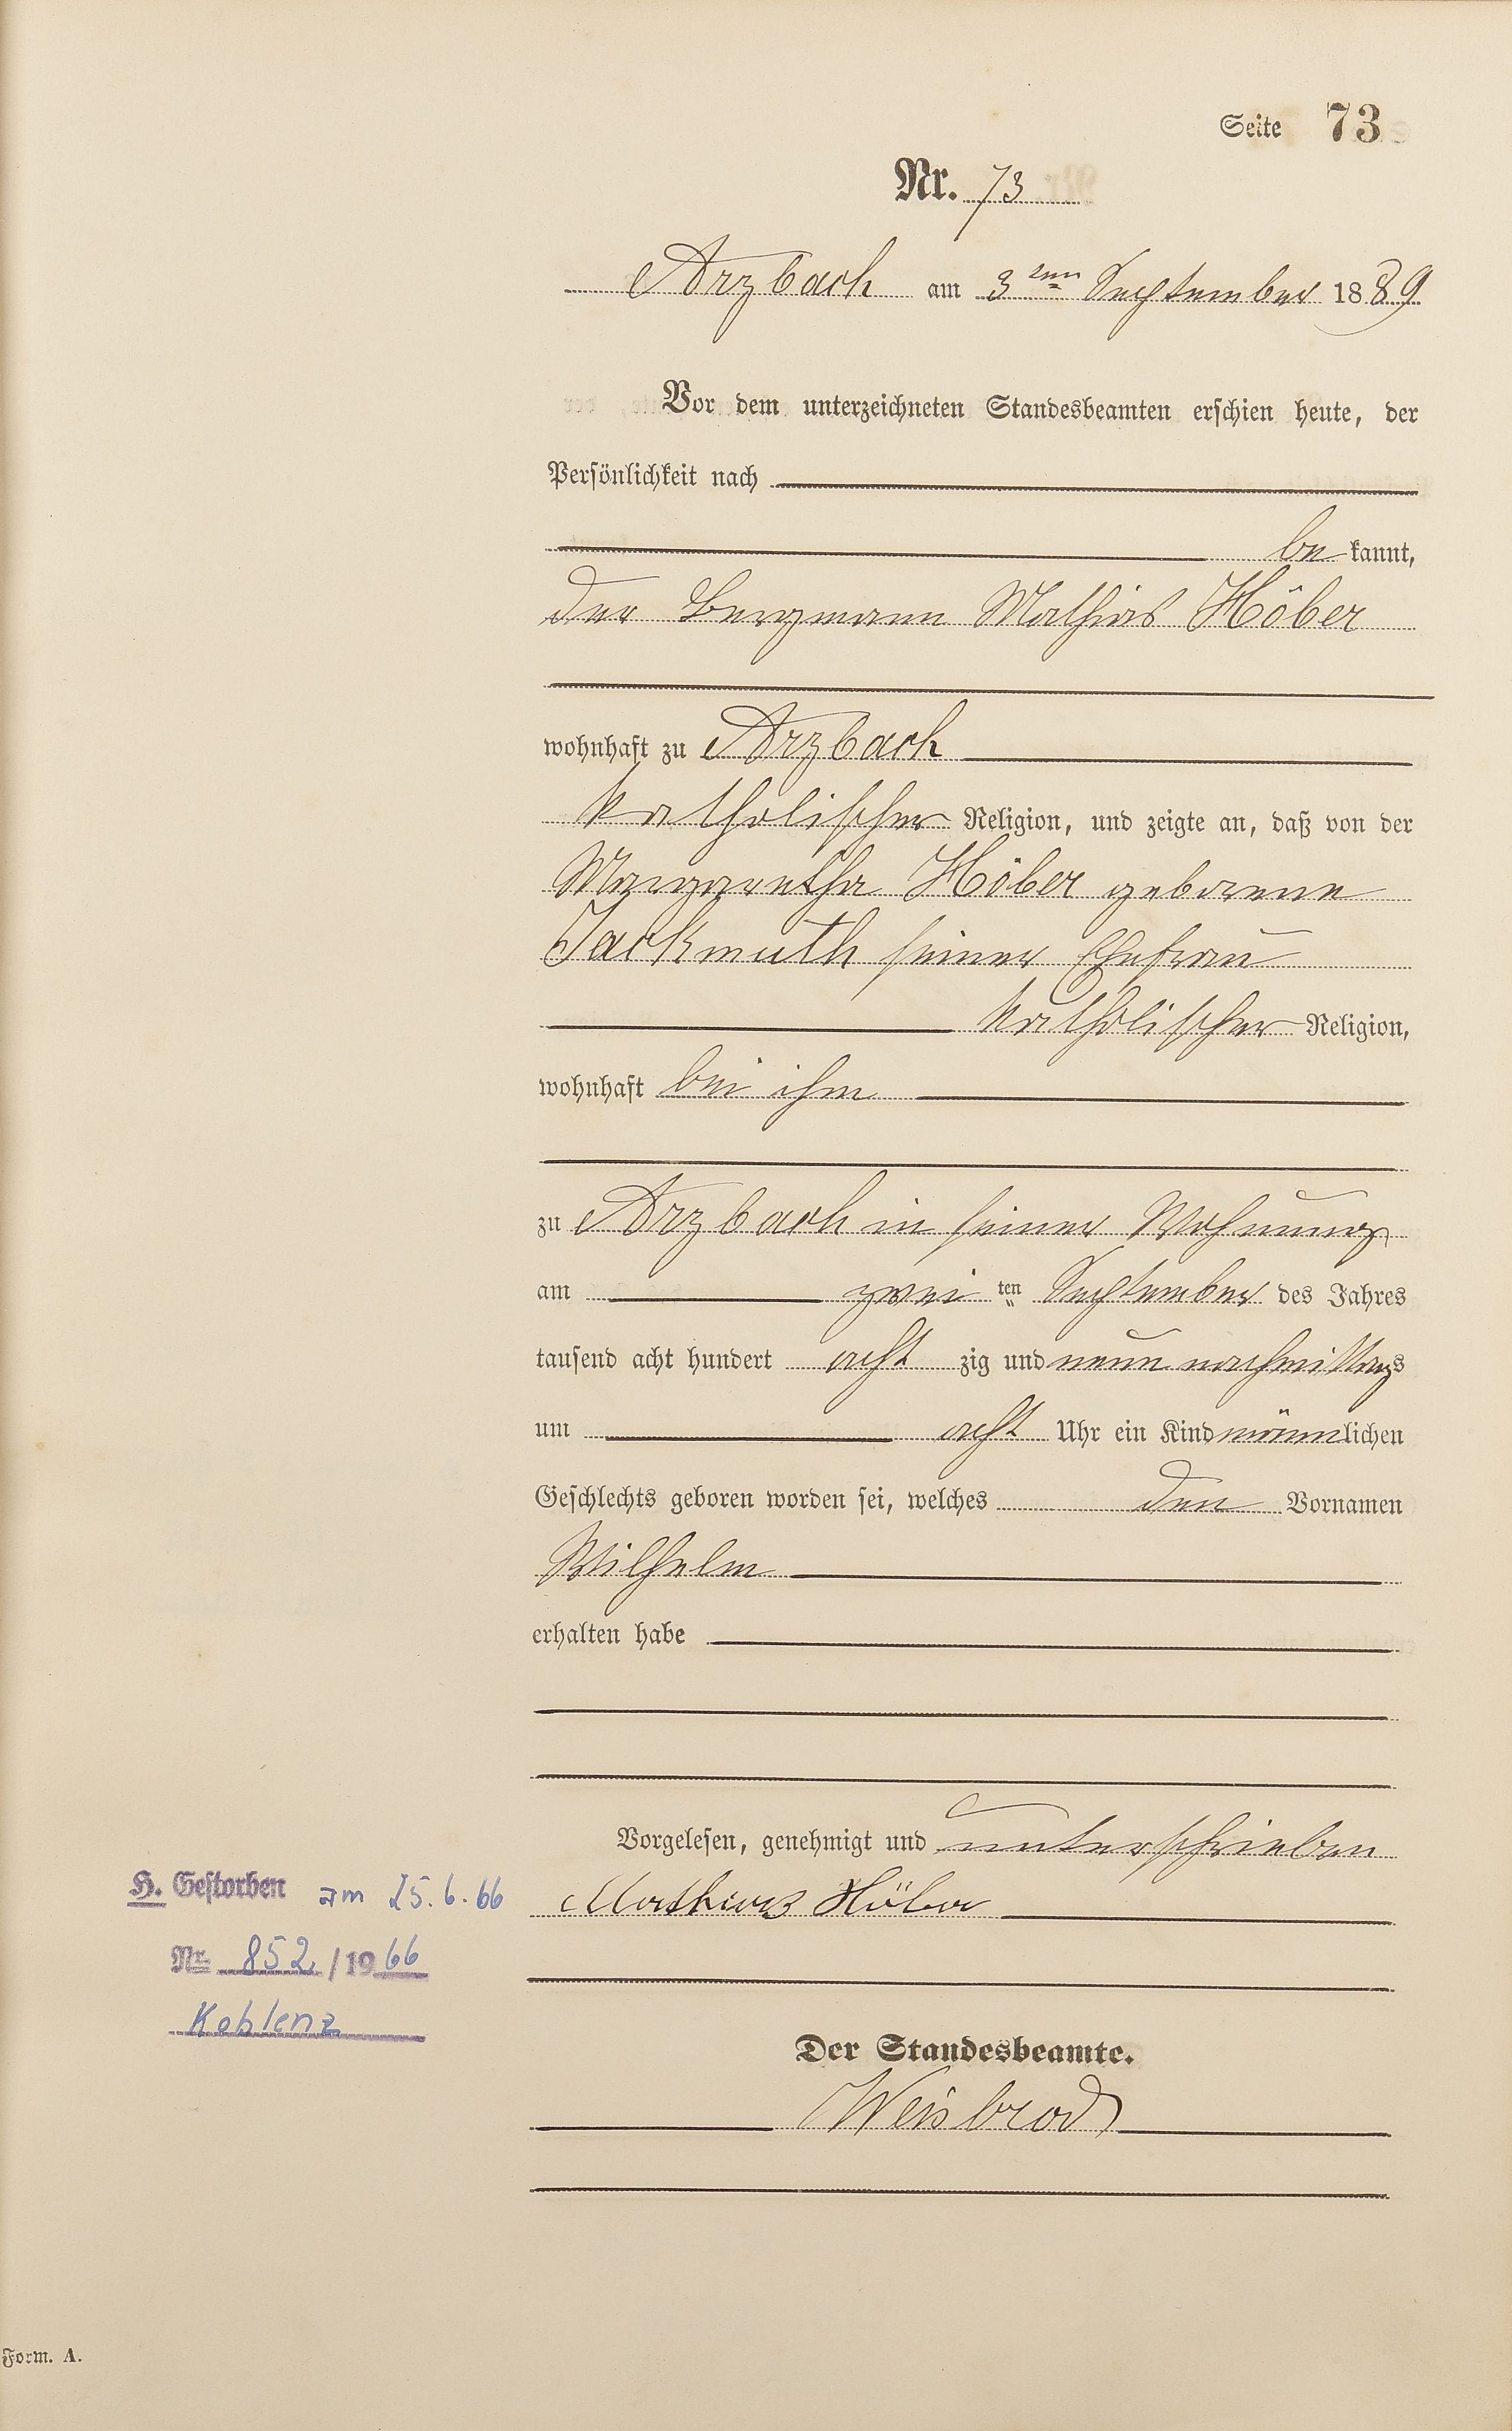 Seite 73
Nr. 73
Arzbach am 3ten September 1889
Vor dem unterzeichneten Standesbeamten erschien heute, der
Persönlichkeit nach
be kannt,
der Bergmann Mathias Höber
wohnhaft zu Arzbach
katholischer Religion, und zeigte an, daß von der
Margaretha Höber geborene
Jackmuth seiner Ehefrau
katholischer Religion,
wohnhaft bei ihm
zu Arzbach in seiner Wohnung
am zwei ten September des Jahres
tausend acht hundert acht zig und neun nachmittags
um acht Uhr ein Kind männlichen
Geschlechts geboren worden sei, welches den Vornamen
Wilhelm
erhalten habe
Vorgelesen, genehmigt und unterschrieben
Mathias Höber
H. Gestorben am 25.6.66
Nr. 852/1966
Koblenz
Der Standesbeamte.
Weisbrod
Form. A.